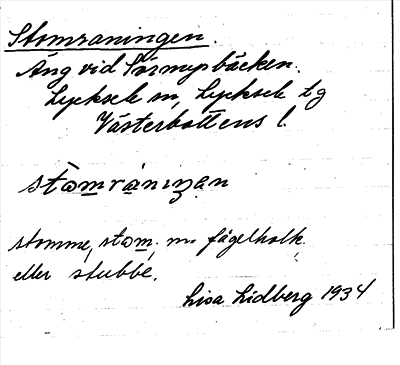 Stomraningen.
Äng vid Sörmyrbäcken.
Lycksele sn, Lycksele tg
Västerbottens l.
stòmrànıŋən
stomme, stom. m. fågelholk
eller stubbe.
Lisa Lidberg 1934